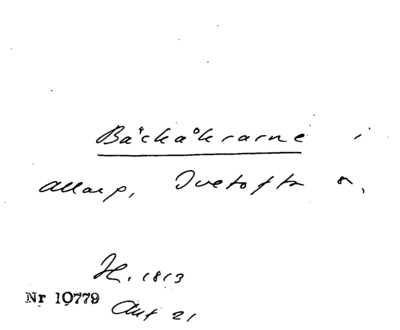 Bäckaåkrarne i
Allarp, Tvetofta s,
H. 1813
Nr 10779
Akt 21